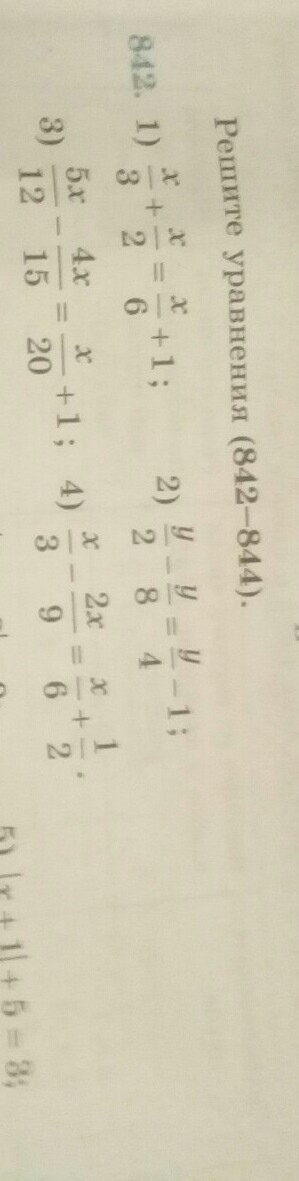 Решите уравнения (842–844).
842. 1) x/3 + x/2 = x/6 + 1; 2) y/2 − y/8 = y/4 − 1;
3) 5x/12 − 4x/15 = x/20 + 1; 4) x/3 − 2x/9 = x/6 + 1/2.
5) |x + 1| + 5 = 3;